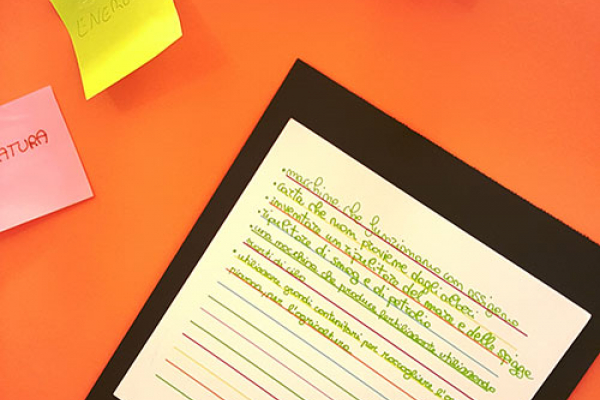 ENERG
ATURA
• macchine che funzionano con ossigeno
• carta che non proviene dagli alberi
• inventare un ripulitore del mare e delle spiagge
• ripulitore di smog e di petrolio
• una macchina che produce fertilizzante utilizzando
scarti di cibo
• utilizzare grandi contenitori per raccogliere l'a
piovana per l'agricoltura